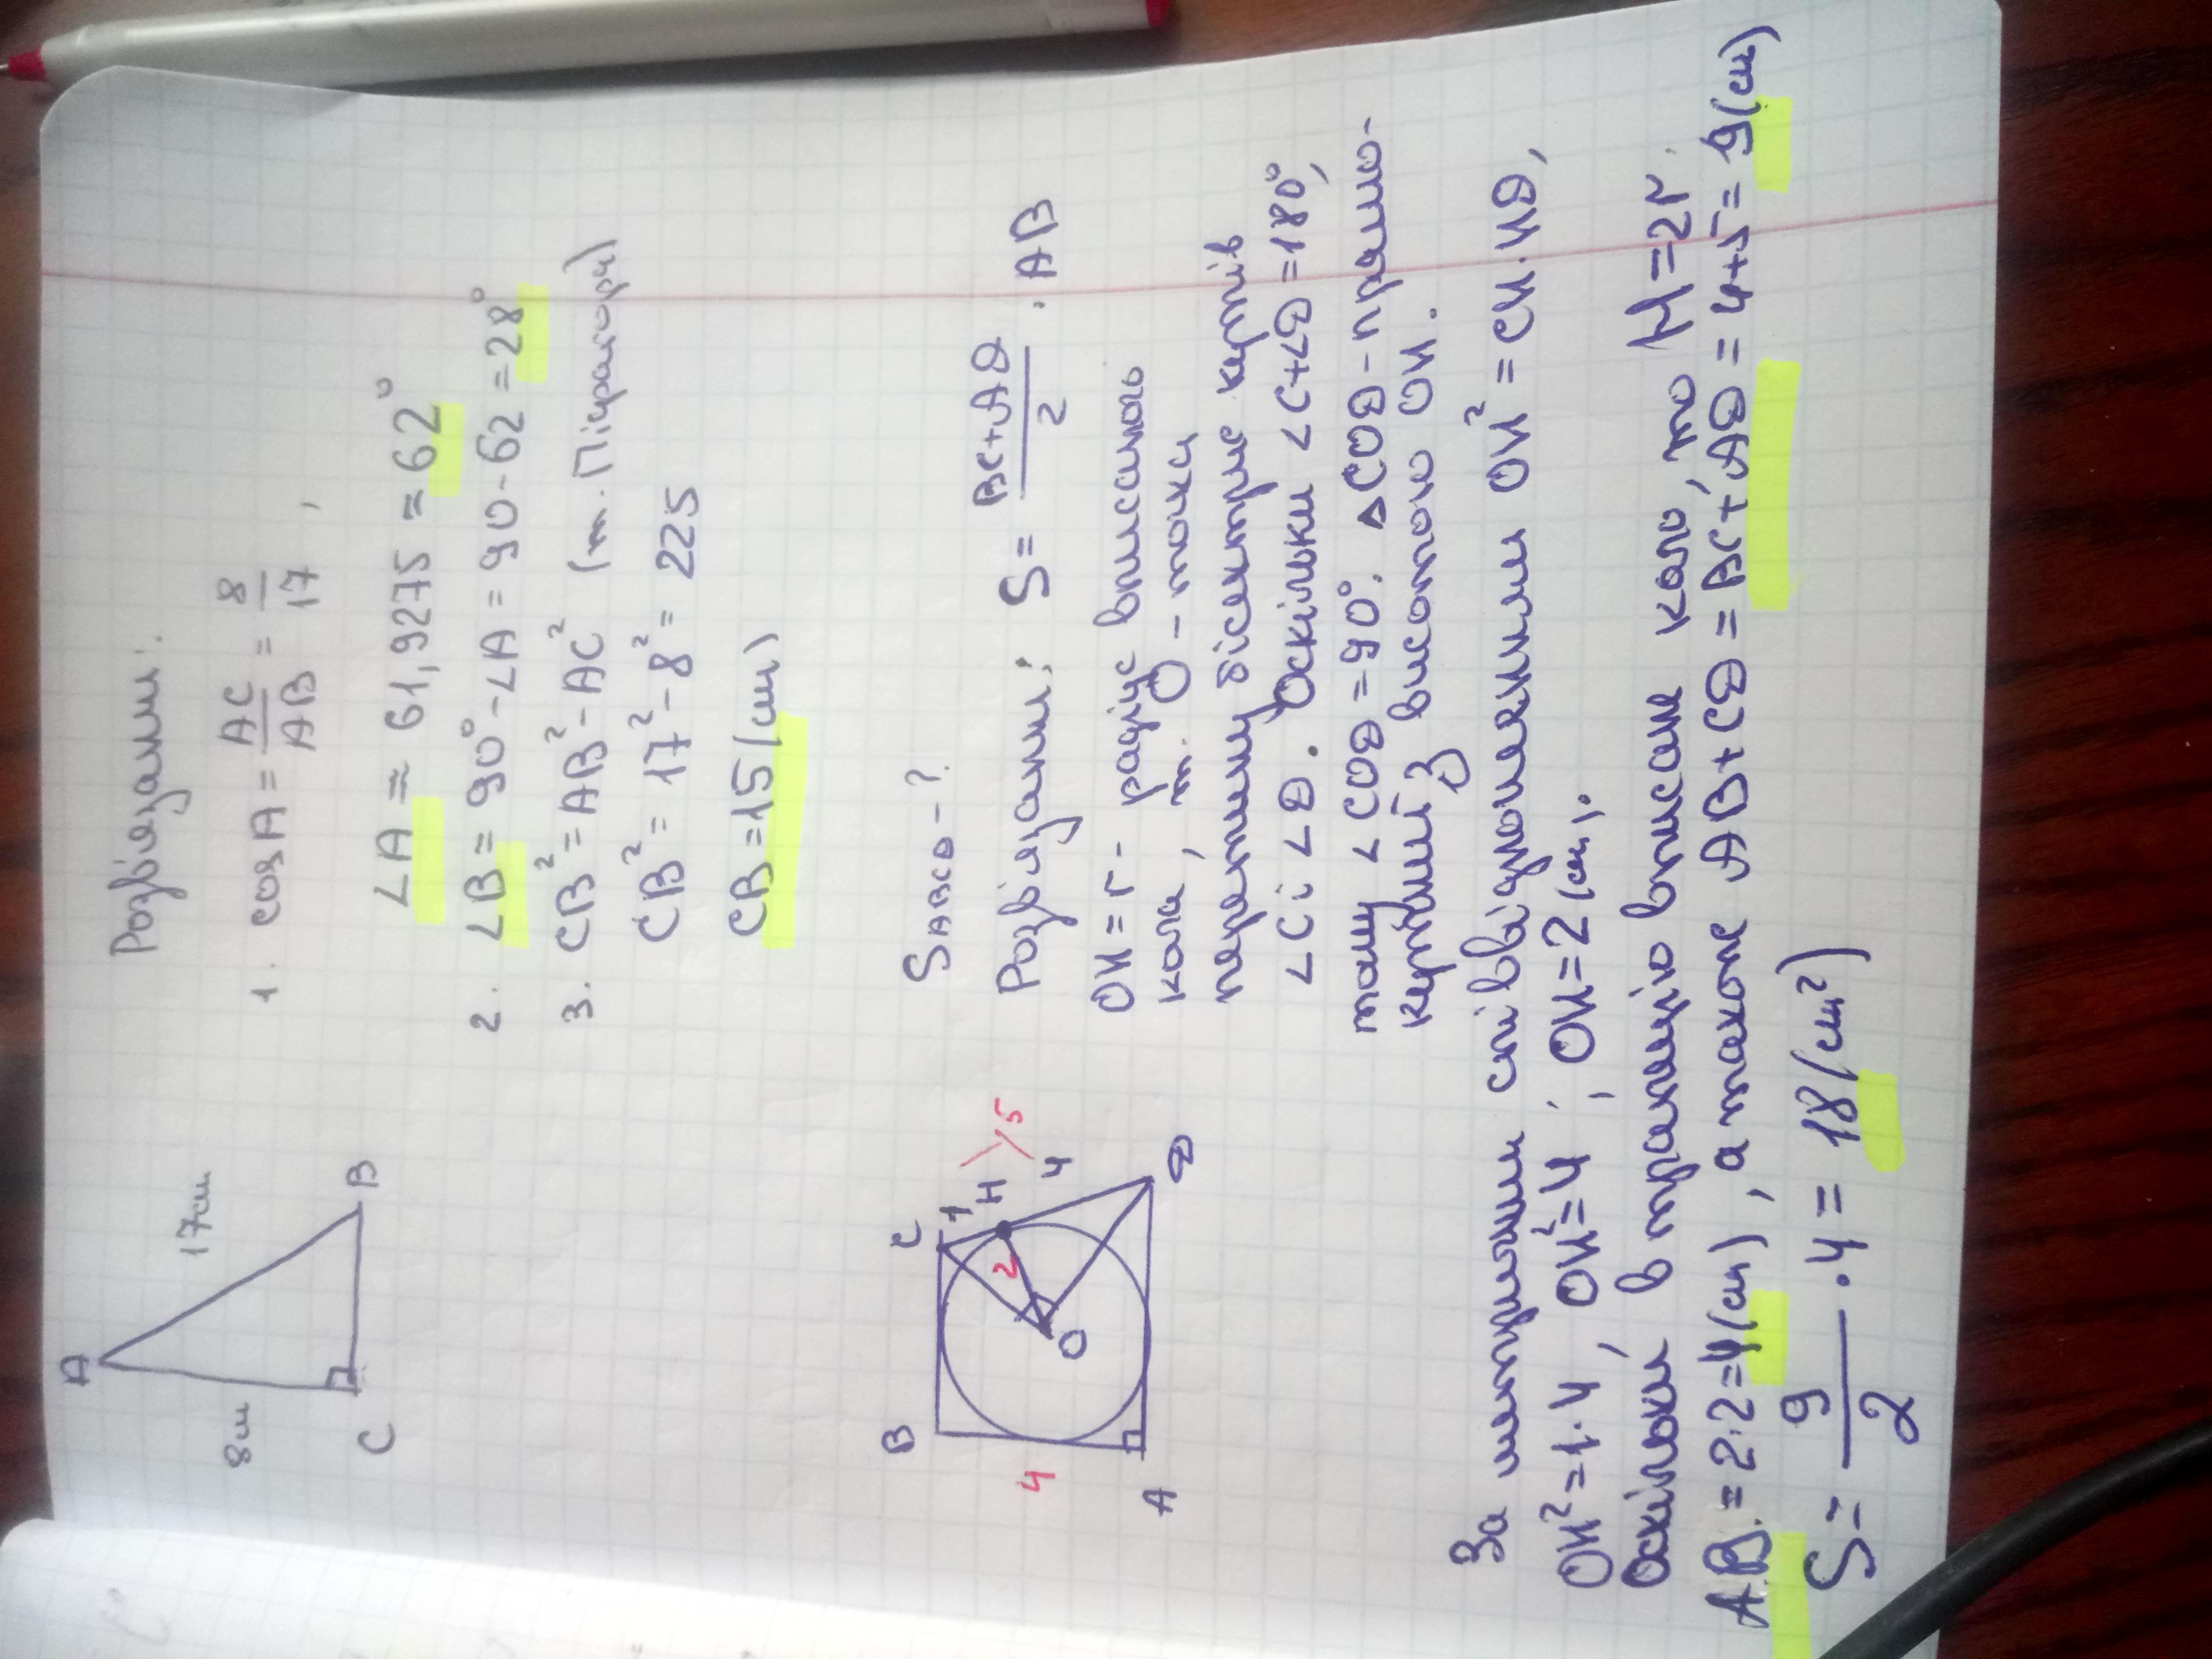 Розв'язання:
A
17см
8см
C
B
1. cosA = AC/AB = 8/17 ,
∠A = 61,9275 ≈ 62°
2. ∠B = 90° - ∠A = 90 - 62 = 28°
3. CB² = AB² - AC² (т. Піфагора)
CB² = 17² - 8² = 225
CB = 15 (см)
S ABCD - ?
Розв'язання: S = (BC + AD)/2 · AB
B
C
1
H
5
4
2
O
4
A
D
OH = r - радіус вписаного
кола, т. O - точка
перетину бісектрис кутів
∠C і ∠D. Оскільки ∠C + ∠D = 180°,
тому ∠COD = 90°. △COD - прямо-
кутний з висотою OH.
За метричними співвідношеннями OH² = CH · HD,
OH² = 1 · 4, OH² = 4 ; OH = 2 (см).
Оскільки в трапецію вписане коло, то H = 2r.
AB = 2 · 2 = 4 (см), а також AB + CD = BC + AD = 4 + 5 = 9 (см)
S = 9/2 · 4 = 18 (см²)